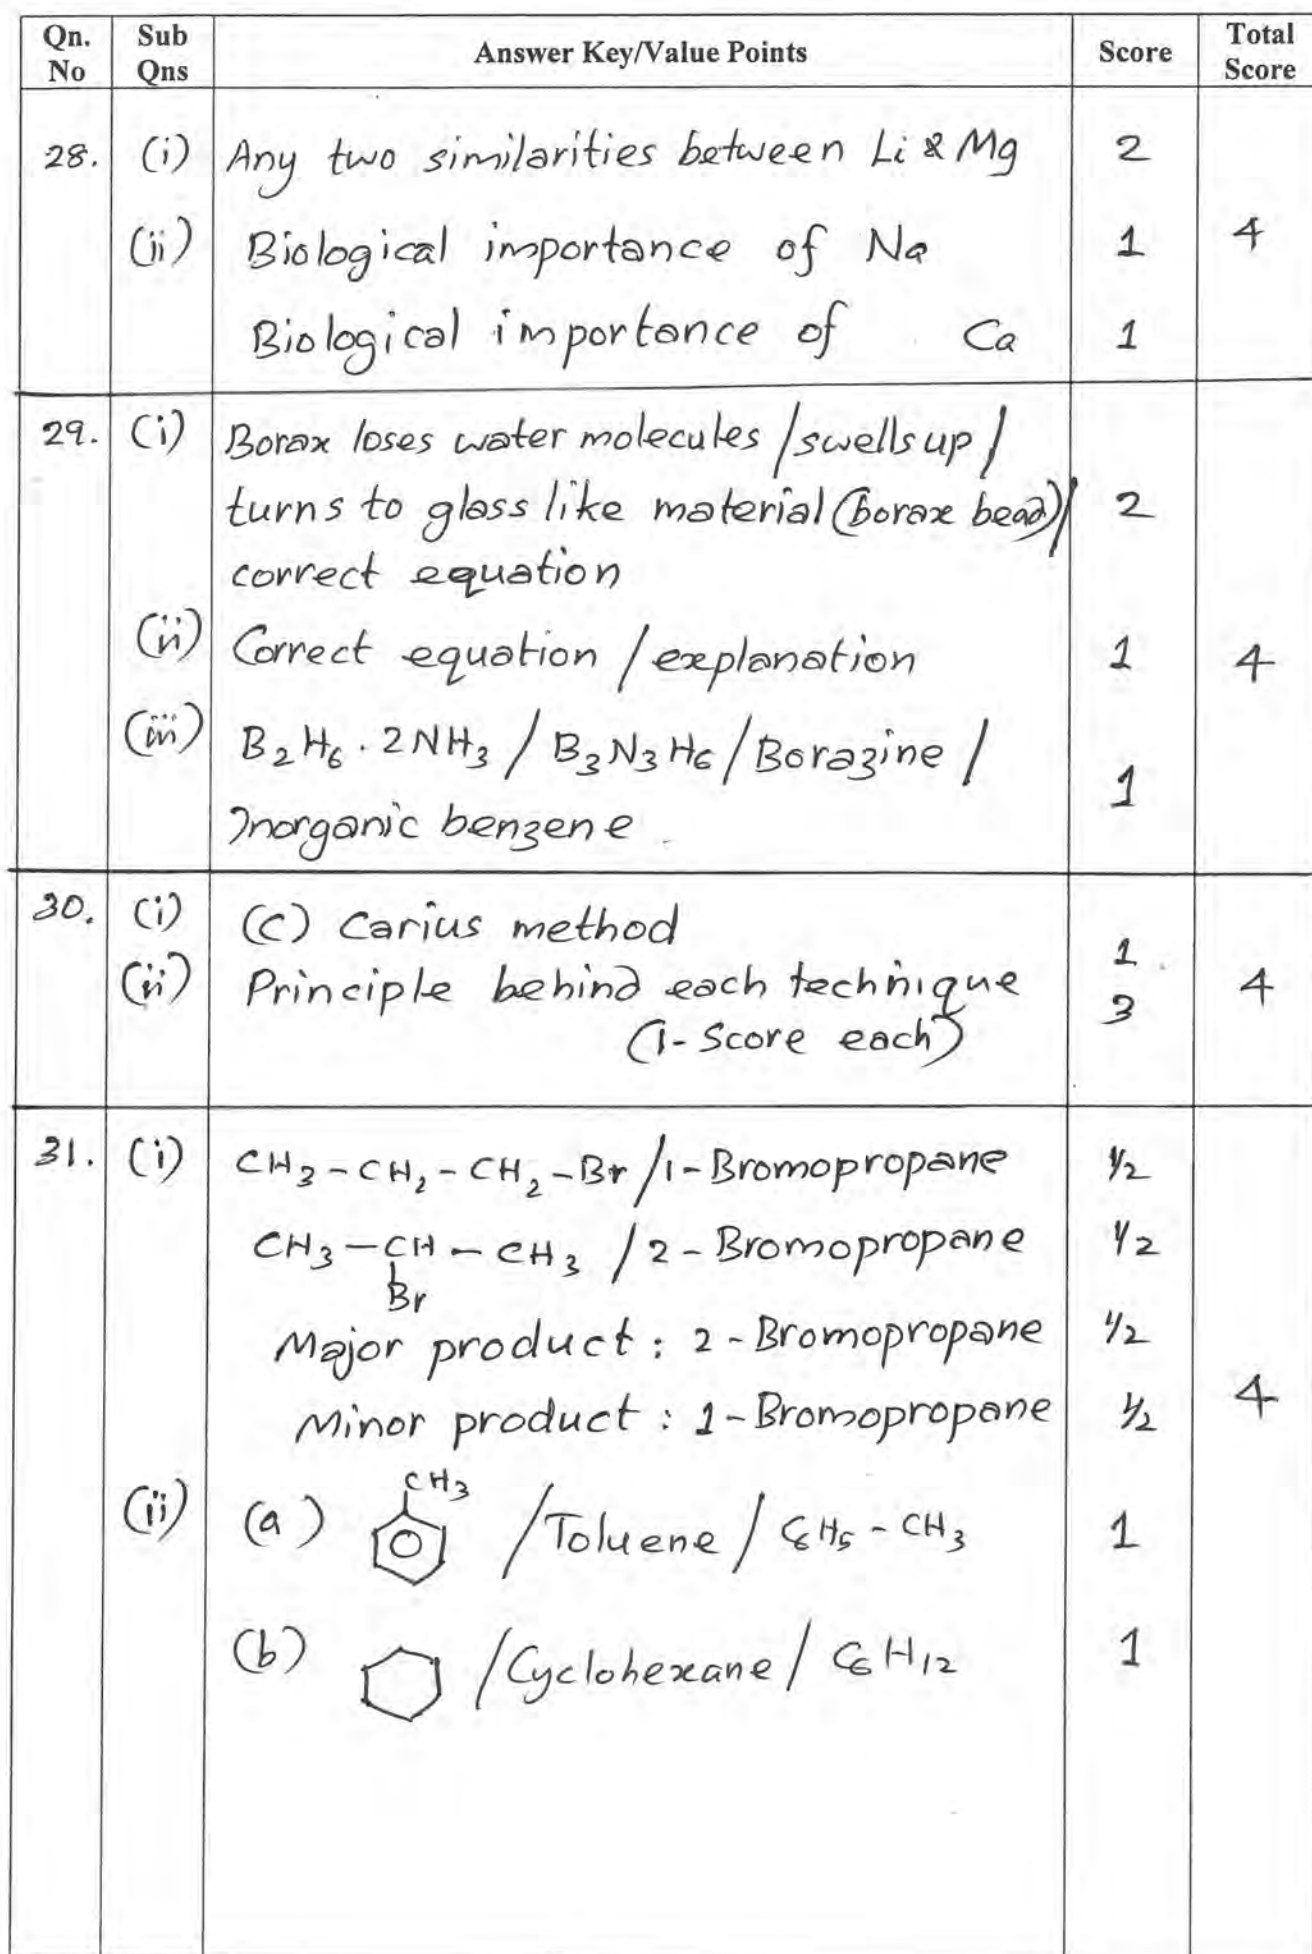 Qn. No Sub Qns Answer Key/Value Points Score Total Score
28. (i) Any two similarities between Li & Mg 2
(ii) Biological importance of Na 1 4
Biological importance of Ca 1
29. (i) Borax loses water molecules / swells up /
turns to glass like material (borax bead) / 2
correct equation
(ii) Correct equation / explanation 1 4
(iii) B₂H₆ . 2NH₃ / B₃N₃H₆ / Borazine /
Inorganic benzene 1
30. (i) (C) Carius method 1
(ii) Principle behind each technique 3 4
(1- Score each)
31. (i) CH₃ - CH₂ - CH₂ - Br / 1- Bromopropane ½
CH₃ - CH - CH₃ / 2 - Bromopropane ½
Br
Major product : 2 - Bromopropane ½
Minor product : 1 - Bromopropane ½ 4
CH₃
(ii) (a) / Toluene / C₆H₅ - CH₃ 1
(b) / Cyclohexane / C₆H₁₂ 1